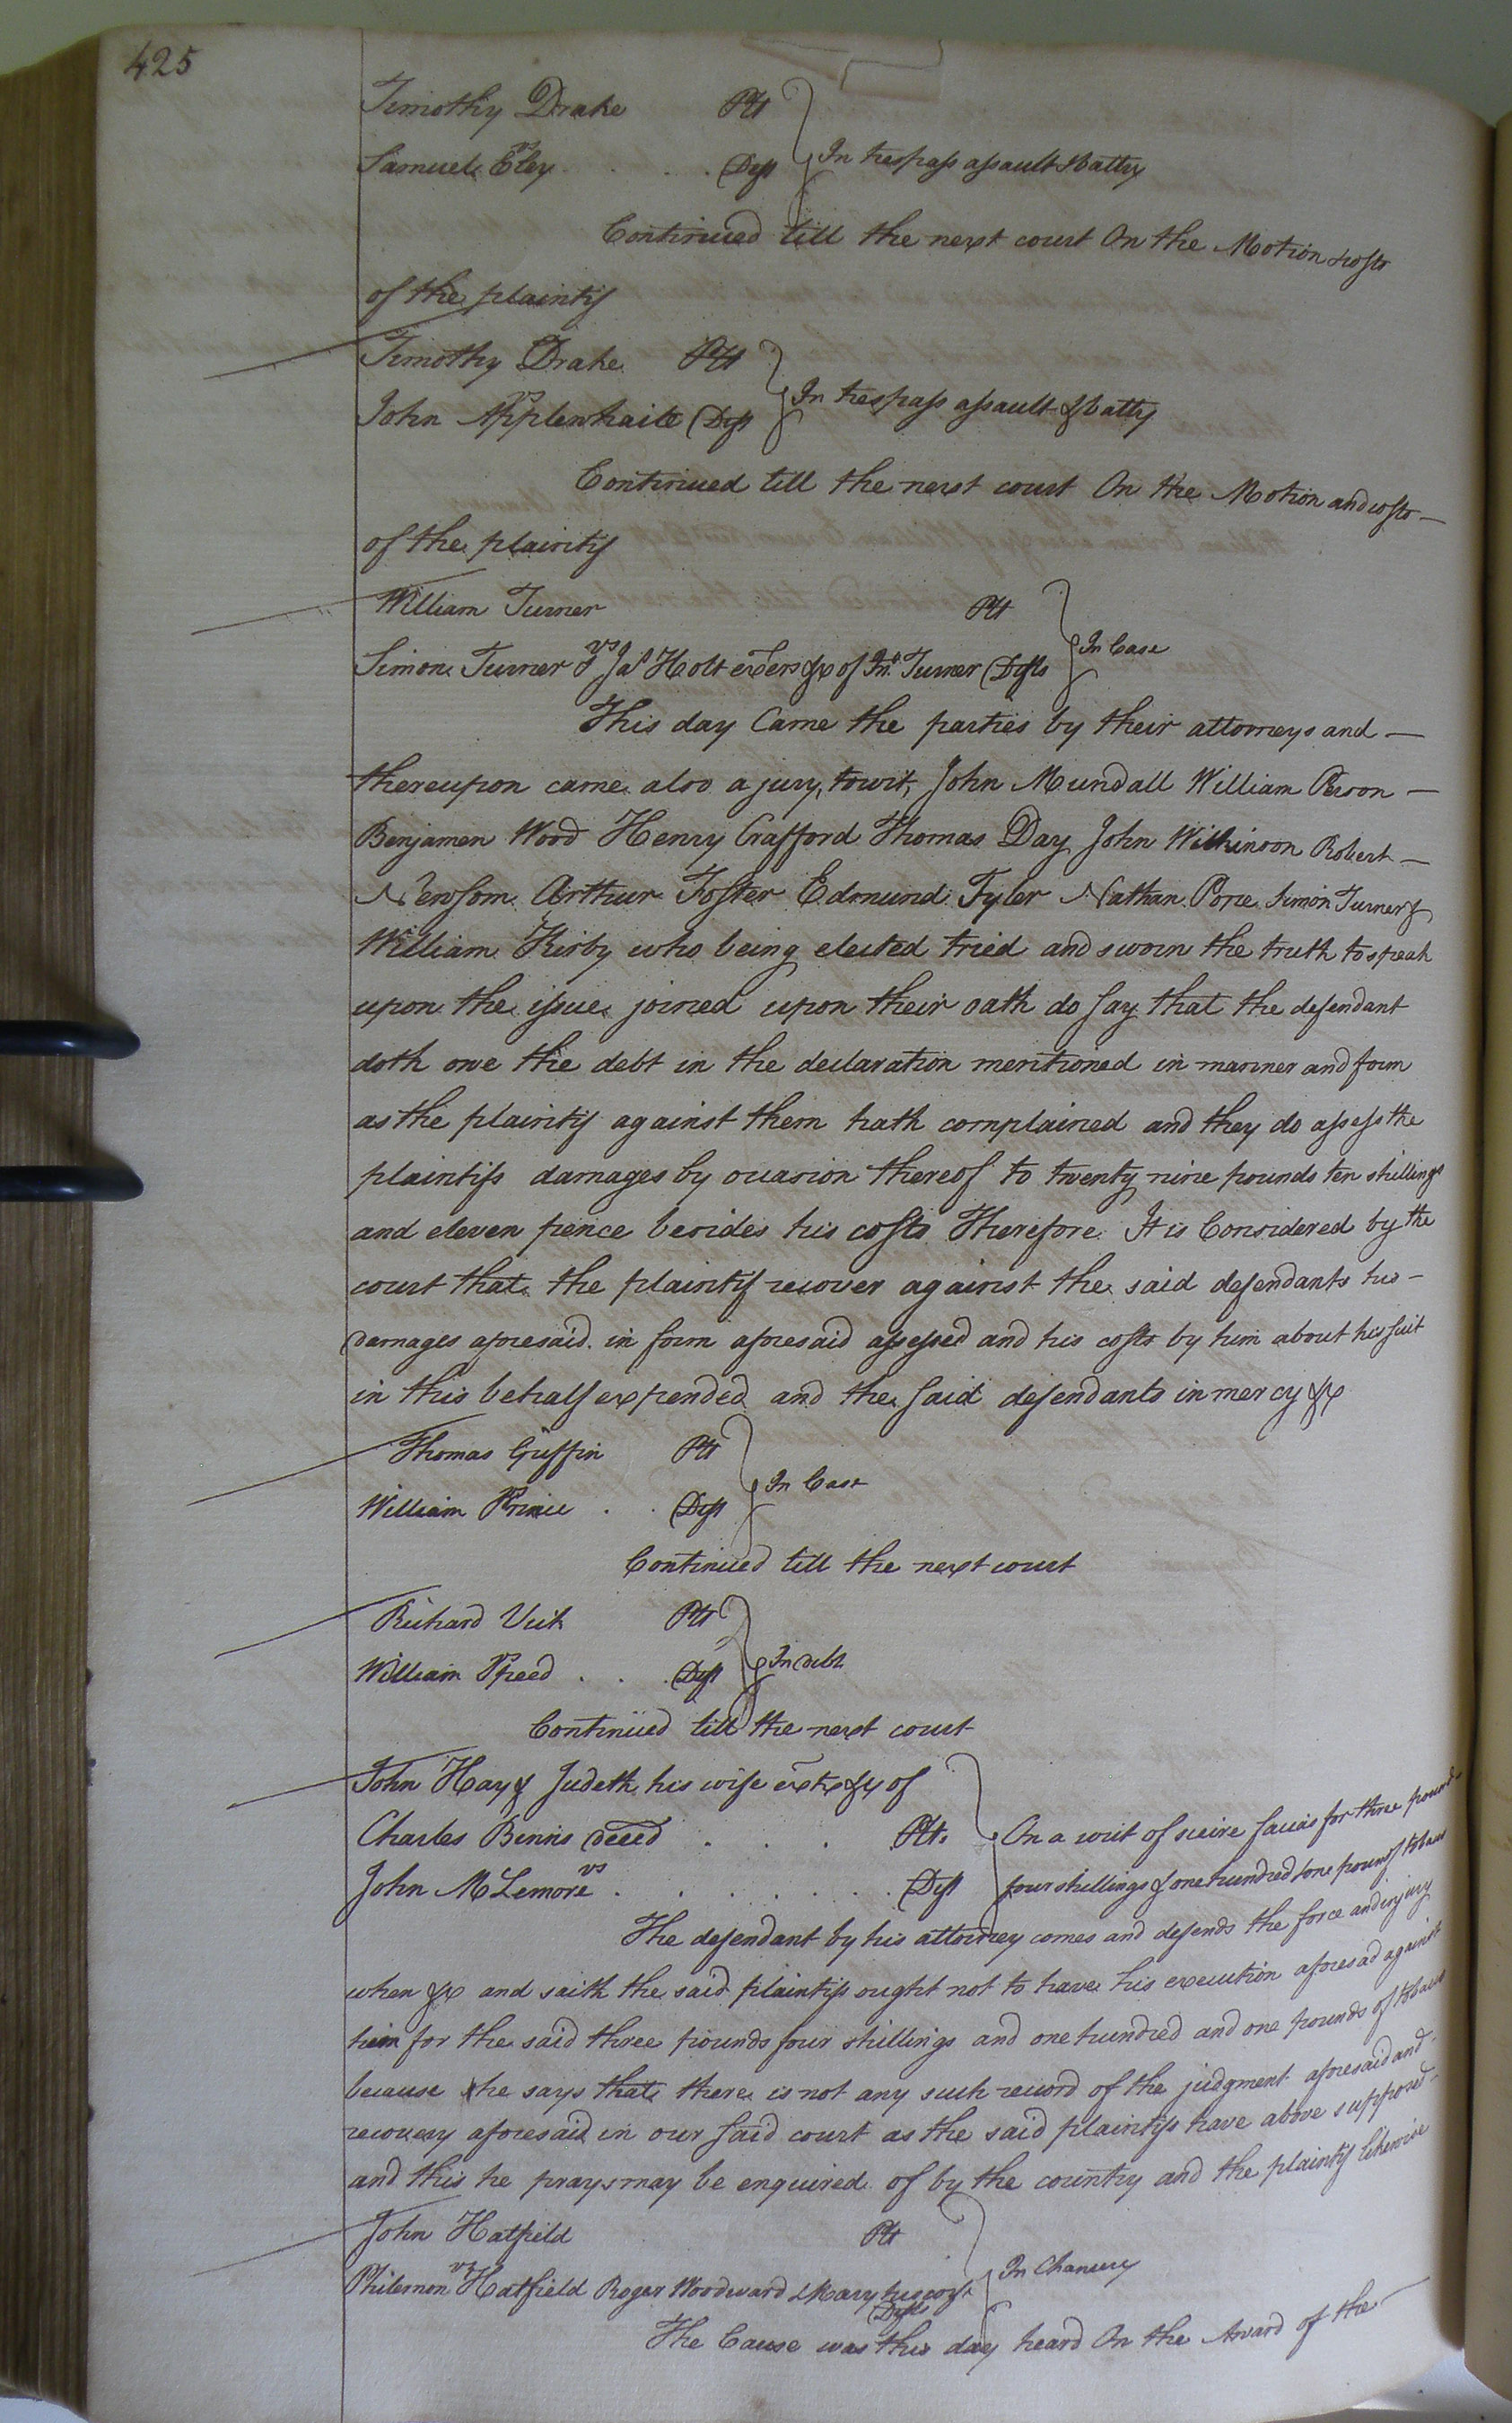 425
Timothy Drake Plt
vs
Samuel Eley . . . Deft } In trespass assault & batty
Continued till the next court On the Motion & costs
of the plaintif
Timothy Drake Plt
vs
John Applewhaite Deft } In trespass assault & batty
Continued till the next court On the Motion and costs —
of the plaintif
William Turner Plt
vs
Simon Turner & Jas Holt exers &c of Jno. Turner Defts } In Case
This day Came the parties by their attorneys and —
thereupon came also a jury, towit, John Mundall William Person —
Benjamen Wood Henry Crafford Thomas Day John Wilkinson Robert —
Newsom Arthur Foster Edmund Tyler Nathan Pope Simon Turner &
William Kirby who being elected tried and sworn the truth to speak
upon the issue joined upon their oath do say that the defendant
doth owe the debt in the declaration mentioned in manner and form
as the plaintif against them hath complained and they do assess the
plaintifs damages by occasion thereof to twenty nine pounds ten shillings
and eleven pence besides his costs Therefore It is Considered by the
court that the plaintif recover against the said defendants his —
damages aforesaid in form aforesaid assessed and his costs by him about his suit
in this behalf expended and the said defendants in mercy &c
Thomas Griffin Plt
vs
William Prince . . Deft } In Case
Continued till the next court
Richard Vick Plt
vs
William Speed . . . Deft } In debt
Continued till the next court
John Hay & Judeth his wife extx &c of
Charles Binns deced . . . Plts } On a writ of scire facias for three pound
vs
John McLemore . . . . . . . Deft four shillings & one hundred & one pounds tobacco
The defendant by his attorney comes and defends the force and injury
when &c and saith the said plaintifs ought not to have his execution aforesad against
him for the said three pounds four shillings and one hundred and one pounds of tobacco
because he says that there is not any such record of the judgment aforesaid and
recovery aforesaid in our said court as the said plaintifs have above supposed
and this he prays may be enquired of by the country and the plaintif likewise
John Hatfield Plt
vs
Philemon Hatfield Roger Woodward & Mary his wife Defts } In Chancery
The Cause was this day heard On the Award of the —